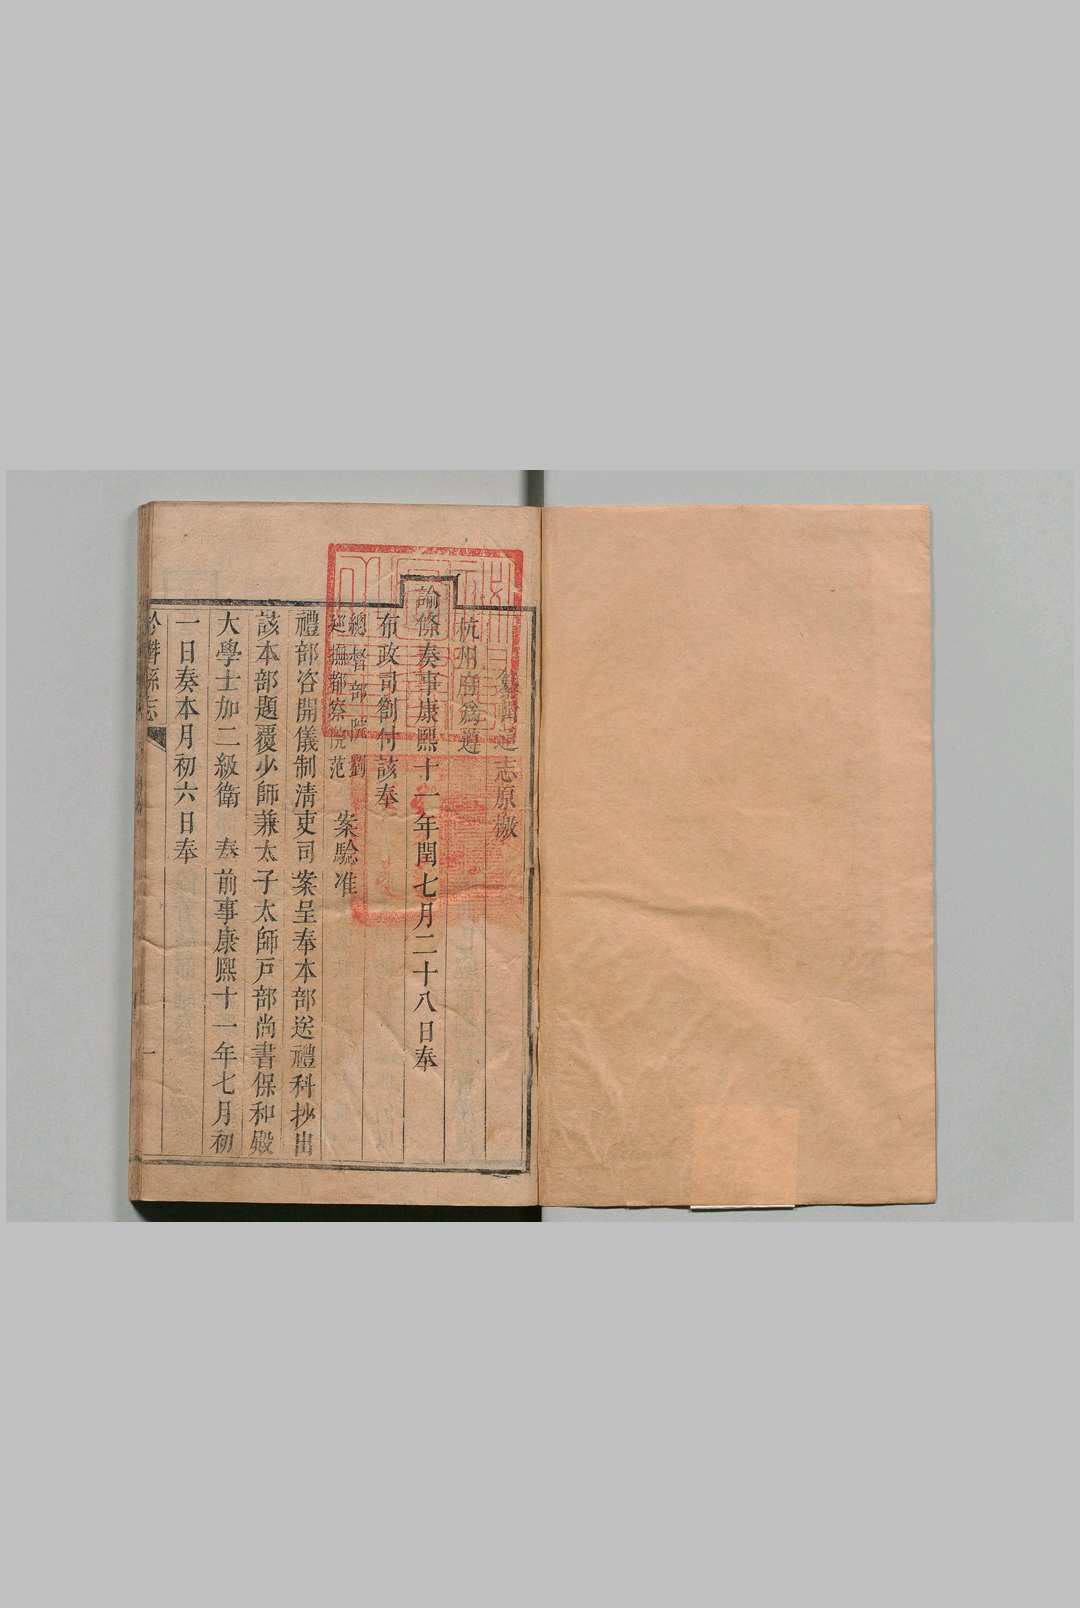 纂脩通志原檄
杭州府為遵
諭條奏事康熙十一年閏七月二十八日奉
布政司劄付該奉
總督部院劉
巡撫都察院范 案驗准
禮部咨開儀制清吏司案呈奉本部送禮科抄出
該本部題覆少師兼太子太師戶部尚書保和殿
大學士加二級衛 奏前事康熙十一年七月初
一日奏本月初六日奉
於潛縣志
一